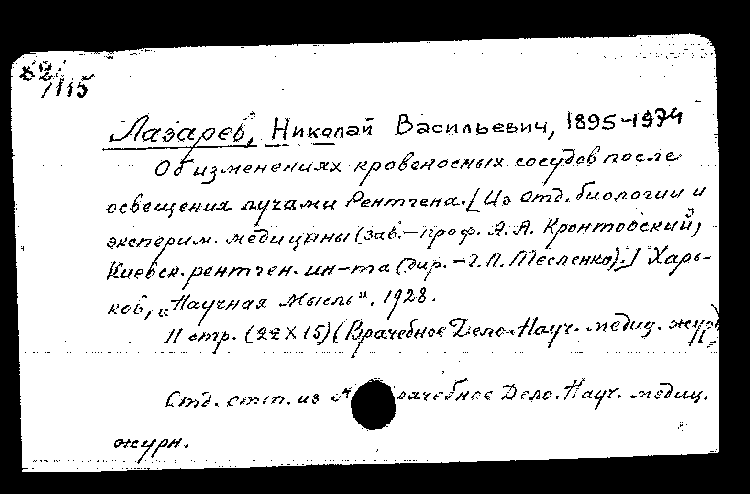 82/115
Лазарев, Николай Васильевич, 1895-1974
Об изменениях кровеносных сосудов после
освещения лучами Рентгена. [Из отд. биологии и
эксперим. медицины (зав.-проф. А. А. Кронтовский)
Киевск. рентген. ин-та (дир. - Г. П. Тесленко).] Харь-
ков, "Научная Мысль". 1928.
11 стр. (22X15) (Врачебное Дело. Науч. медиц. журн
Отд. отт. из Врачебное Дело. Науч. медиц.
журн.